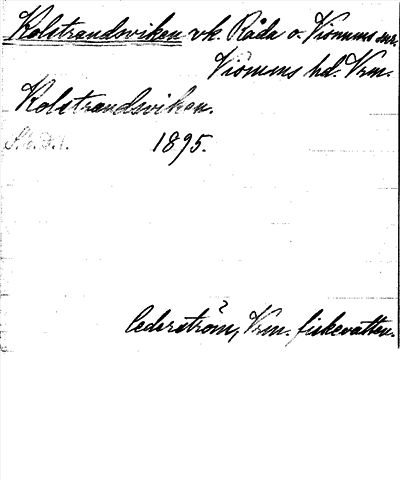 Kolstrandsviken vk. Råda o. Visnums snr.
Visnums hd. Vrm.
Kolstrandsviken.
1895.
Cederström, Vrm. fiskevatten.